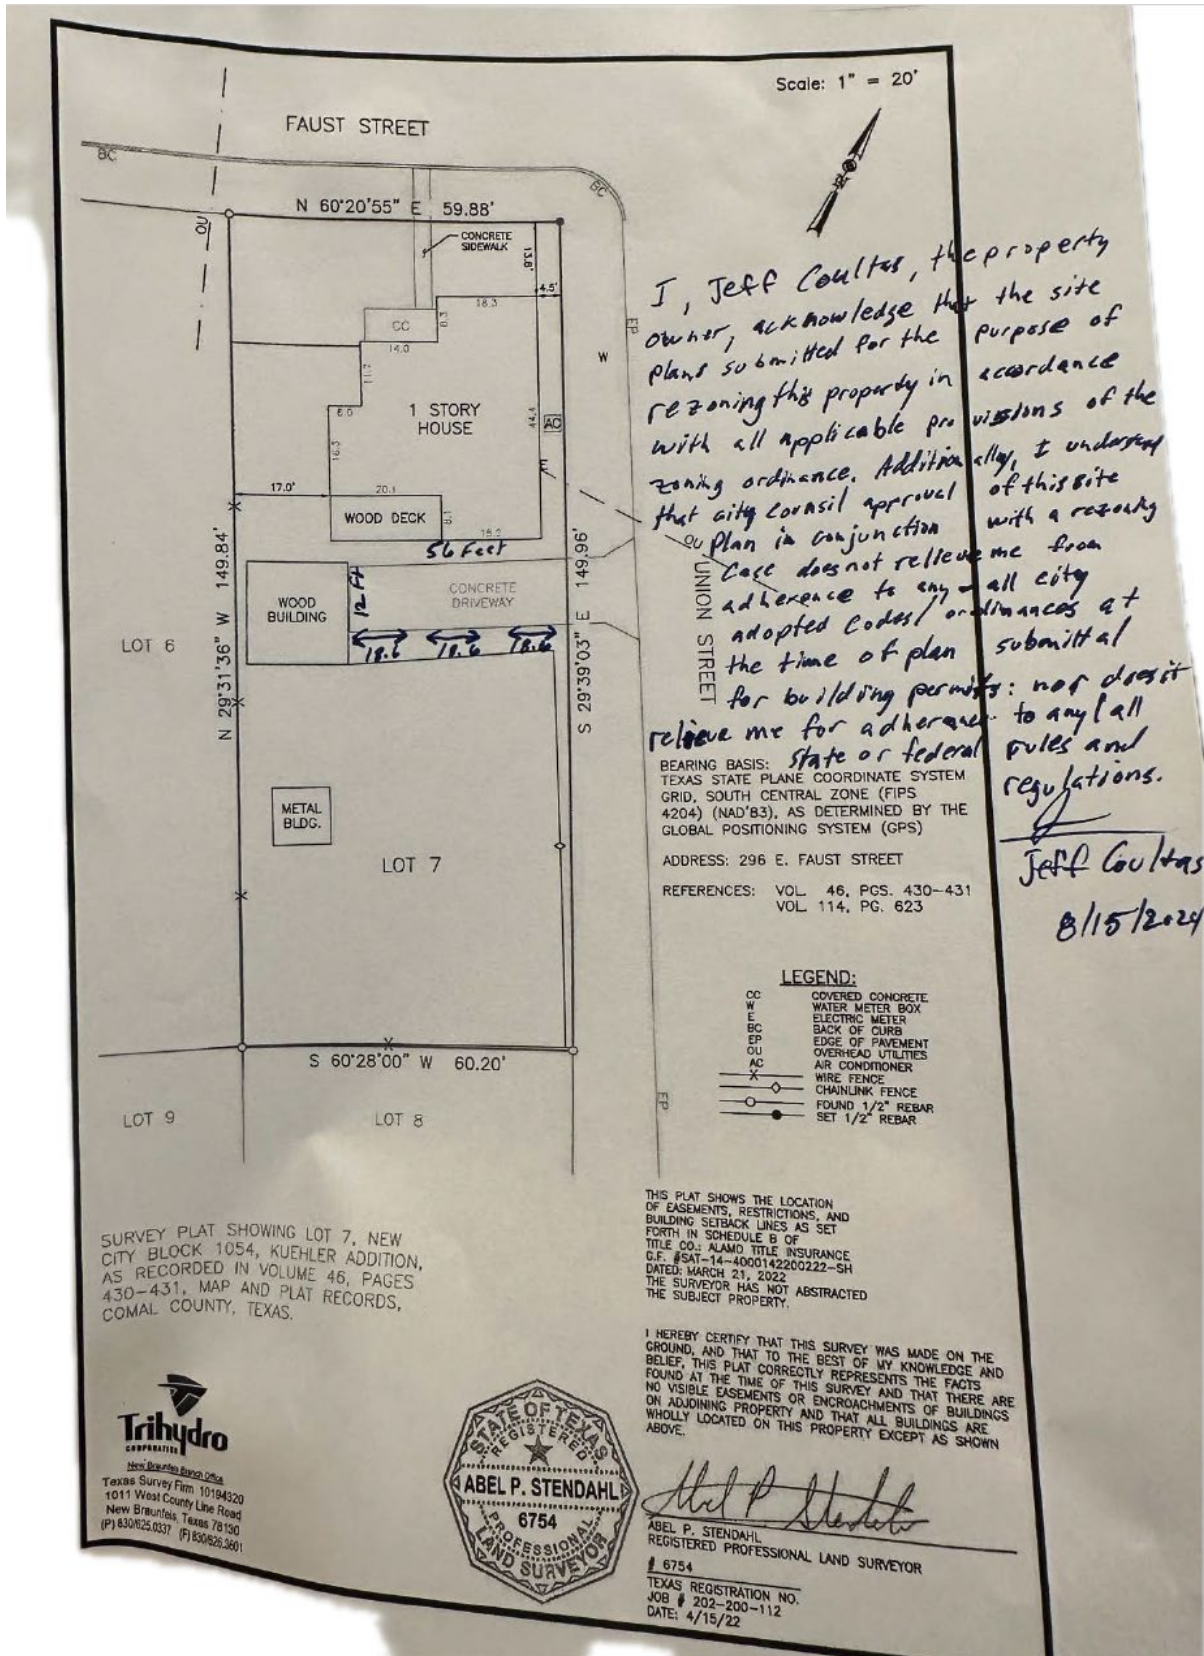 Scale: 1" = 20'
FAUST STREET
BC
BC
OU
N 60°20'55" E 59.88'
CONCRETE
SIDEWALK
13.8'
4.5'
18.3
8.3
CC
14.0
11.7
6.0
1 STORY
HOUSE
44.4
AC
E
EP
W
16.3
17.0'
20.1
WOOD DECK
8.1
18.2
56 Feet
12 Ft
WOOD
BUILDING
CONCRETE
DRIVEWAY
18.6 18.6 18.6
OU
UNION STREET
LOT 6
N 29°31'36" W 149.84'
S 29°39'03" E 149.96'
METAL
BLDG.
LOT 7
S 60°28'00" W 60.20'
LOT 9
LOT 8
EP
I, Jeff Coultas, the property
owner, acknowledge that the site
plans submitted for the purpose of
rezoning this property in accordance
with all applicable provisions of the
zoning ordinance. Additionally, I understand
that city counsil approval of this site
plan in conjunction with a rezoning
case does not relieve me from
adherence to any - all city
adopted codes/ ordinances at
the time of plan submittal
for building permits: nor does it
relieve me for adherence to any/all
state or federal rules and
regulations.
Jeff Coultas
8/15/2024
BEARING BASIS:
TEXAS STATE PLANE COORDINATE SYSTEM
GRID, SOUTH CENTRAL ZONE (FIPS
4204) (NAD'83), AS DETERMINED BY THE
GLOBAL POSITIONING SYSTEM (GPS)
ADDRESS: 296 E. FAUST STREET
REFERENCES: VOL 46, PGS. 430-431
VOL 114, PG. 623
LEGEND:
CC COVERED CONCRETE
W WATER METER BOX
E ELECTRIC METER
BC BACK OF CURB
EP EDGE OF PAVEMENT
OU OVERHEAD UTILITIES
AC AIR CONDITIONER
X WIRE FENCE
CHAINLINK FENCE
FOUND 1/2" REBAR
SET 1/2" REBAR
SURVEY PLAT SHOWING LOT 7, NEW
CITY BLOCK 1054, KUEHLER ADDITION,
AS RECORDED IN VOLUME 46, PAGES
430-431, MAP AND PLAT RECORDS,
COMAL COUNTY, TEXAS.
THIS PLAT SHOWS THE LOCATION
OF EASEMENTS, RESTRICTIONS, AND
BUILDING SETBACK LINES AS SET
FORTH IN SCHEDULE B OF
TITLE CO.: ALAMO TITLE INSURANCE
G.F. #SAT-14-4000142200222-SH
DATED: MARCH 21, 2022
THE SURVEYOR HAS NOT ABSTRACTED
THE SUBJECT PROPERTY.
I HEREBY CERTIFY THAT THIS SURVEY WAS MADE ON THE
GROUND, AND THAT TO THE BEST OF MY KNOWLEDGE AND
BELIEF, THIS PLAT CORRECTLY REPRESENTS THE FACTS
FOUND AT THE TIME OF THIS SURVEY AND THAT THERE ARE
NO VISIBLE EASEMENTS OR ENCROACHMENTS OF BUILDINGS
ON ADJOINING PROPERTY AND THAT ALL BUILDINGS ARE
WHOLLY LOCATED ON THIS PROPERTY EXCEPT AS SHOWN
ABOVE.
Trihydro
CORPORATION
New Braunfels Branch Office
Texas Survey Firm 10194320
1011 West County Line Road
New Braunfels, Texas 78130
(P) 830/625.0337 (F) 830/626.3601
STATE OF TEXAS
REGISTERED
ABEL P. STENDAHL
6754
PROFESSIONAL
LAND SURVEYOR
Abel P Stendahl
ABEL P. STENDAHL
REGISTERED PROFESSIONAL LAND SURVEYOR
# 6754
TEXAS REGISTRATION NO.
JOB # 202-200-112
DATE: 4/15/22